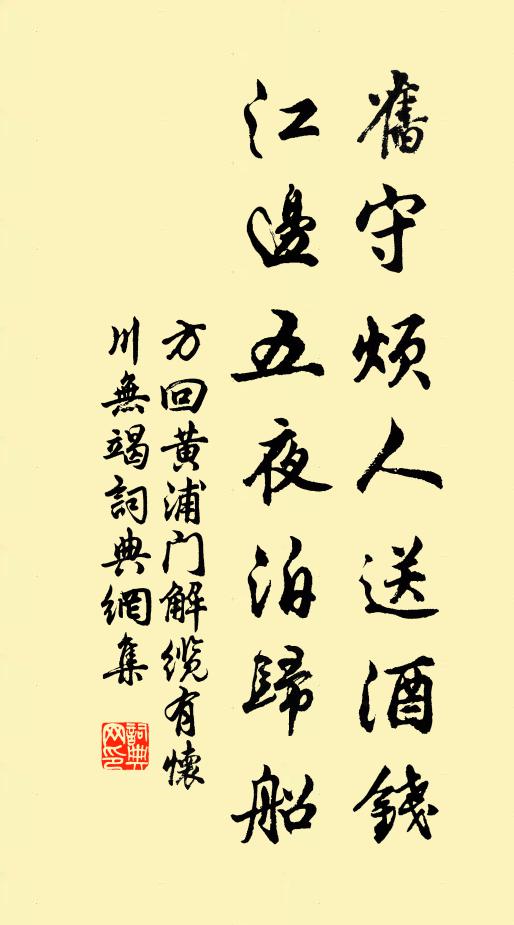 舊守煩人送酒錢
江邊五夜泊歸船
方回黄浦门解缆有懷
川無竭詞典網集
詞典网印